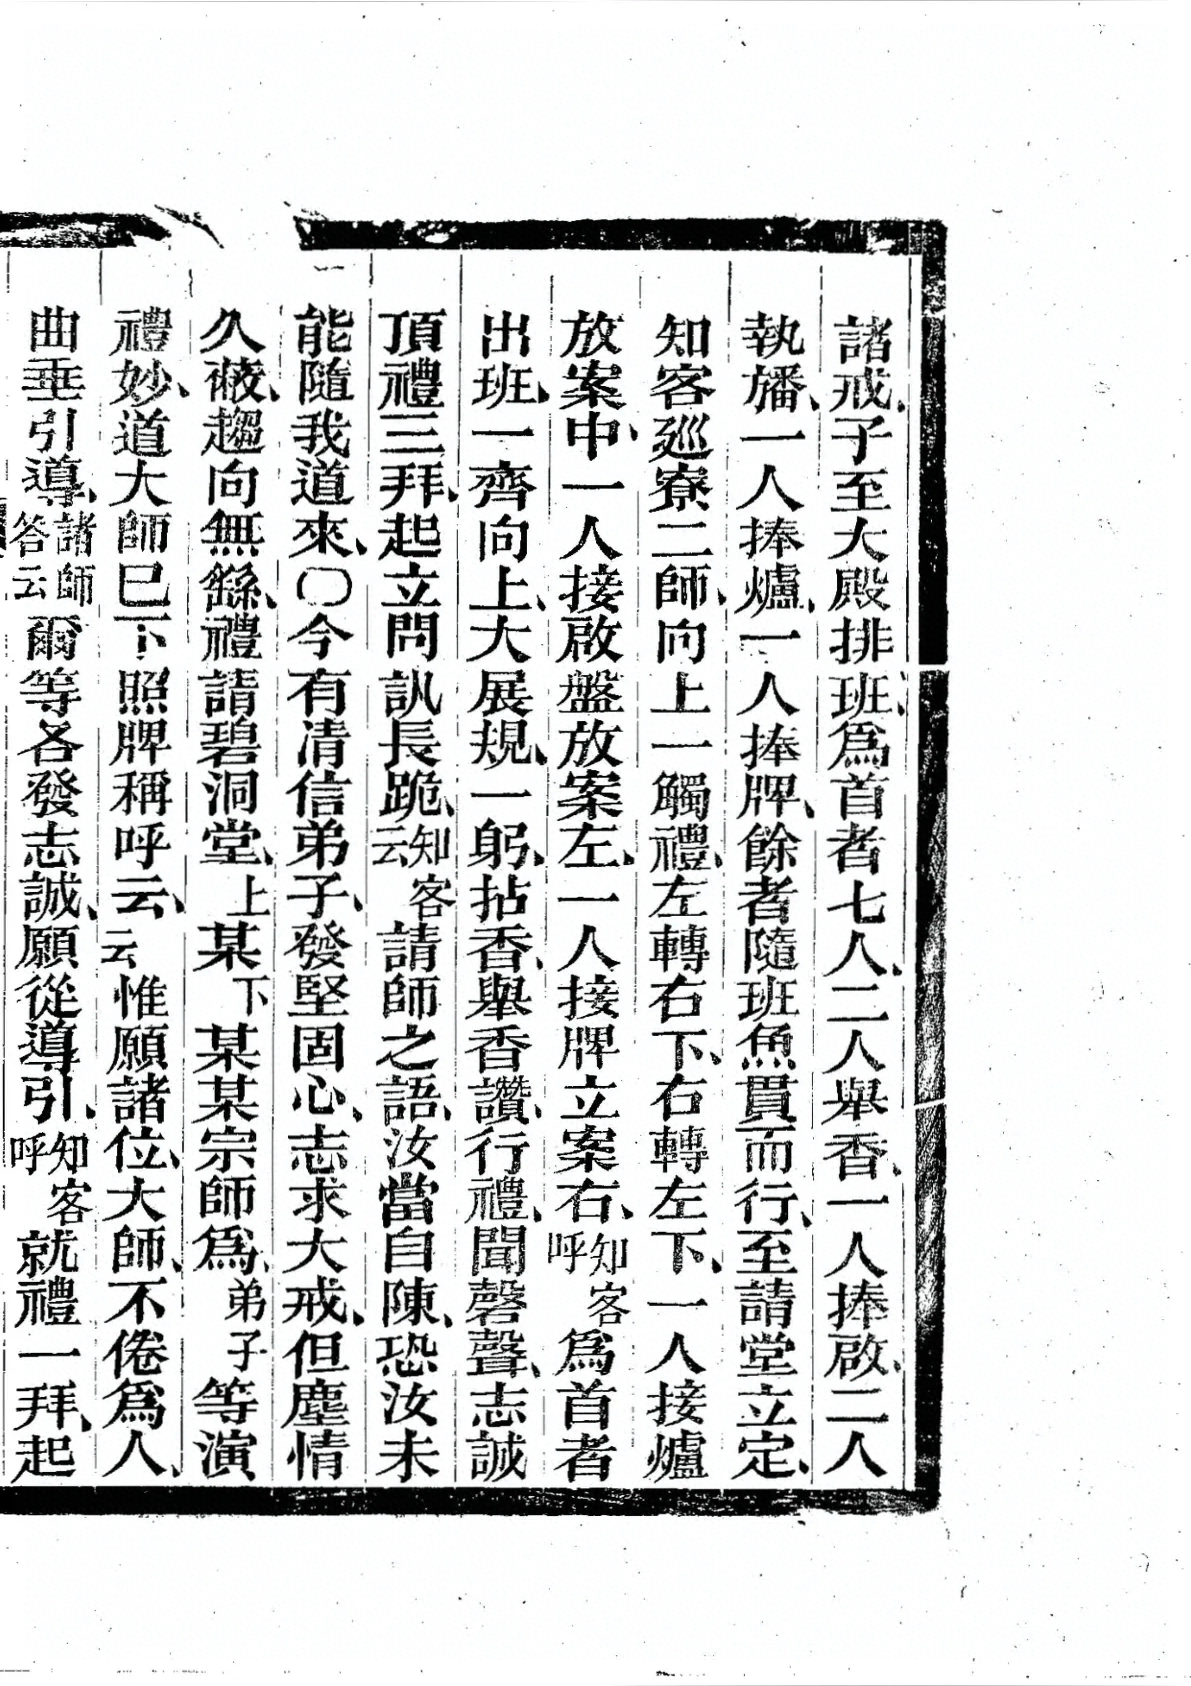 諸戒子至大殿排班、爲首者七人、二人舉香、一人捧啟、二人
執旛、一人捧爐、一人捧牌、餘者隨班魚貫而行、至請堂立定、
知客巡寮二師、向上一觸禮、左轉右下、右轉左下、一人接爐
放案中、一人接啟盤放案左、一人接牌立案右、知客呼爲首者
出班、一齊向上、大展規、一躬、拈香、舉香讚、行禮、聞磬聲、志誠
頂禮三拜、起立問訊長跪、知客云請師之語、汝當自陳、恐汝未
能隨我道來、〇今有清信弟子、發堅固心、志求大戒、但塵情
久蔽、趨向無繇、禮請碧洞堂、上某下某某宗師爲、弟子等演
禮妙、道大師已下照牌稱呼云、云惟願諸位、大師、不倦爲人、
曲垂引導、諸師答云爾等各發志誠、願從導引、知客呼就禮一拜、起